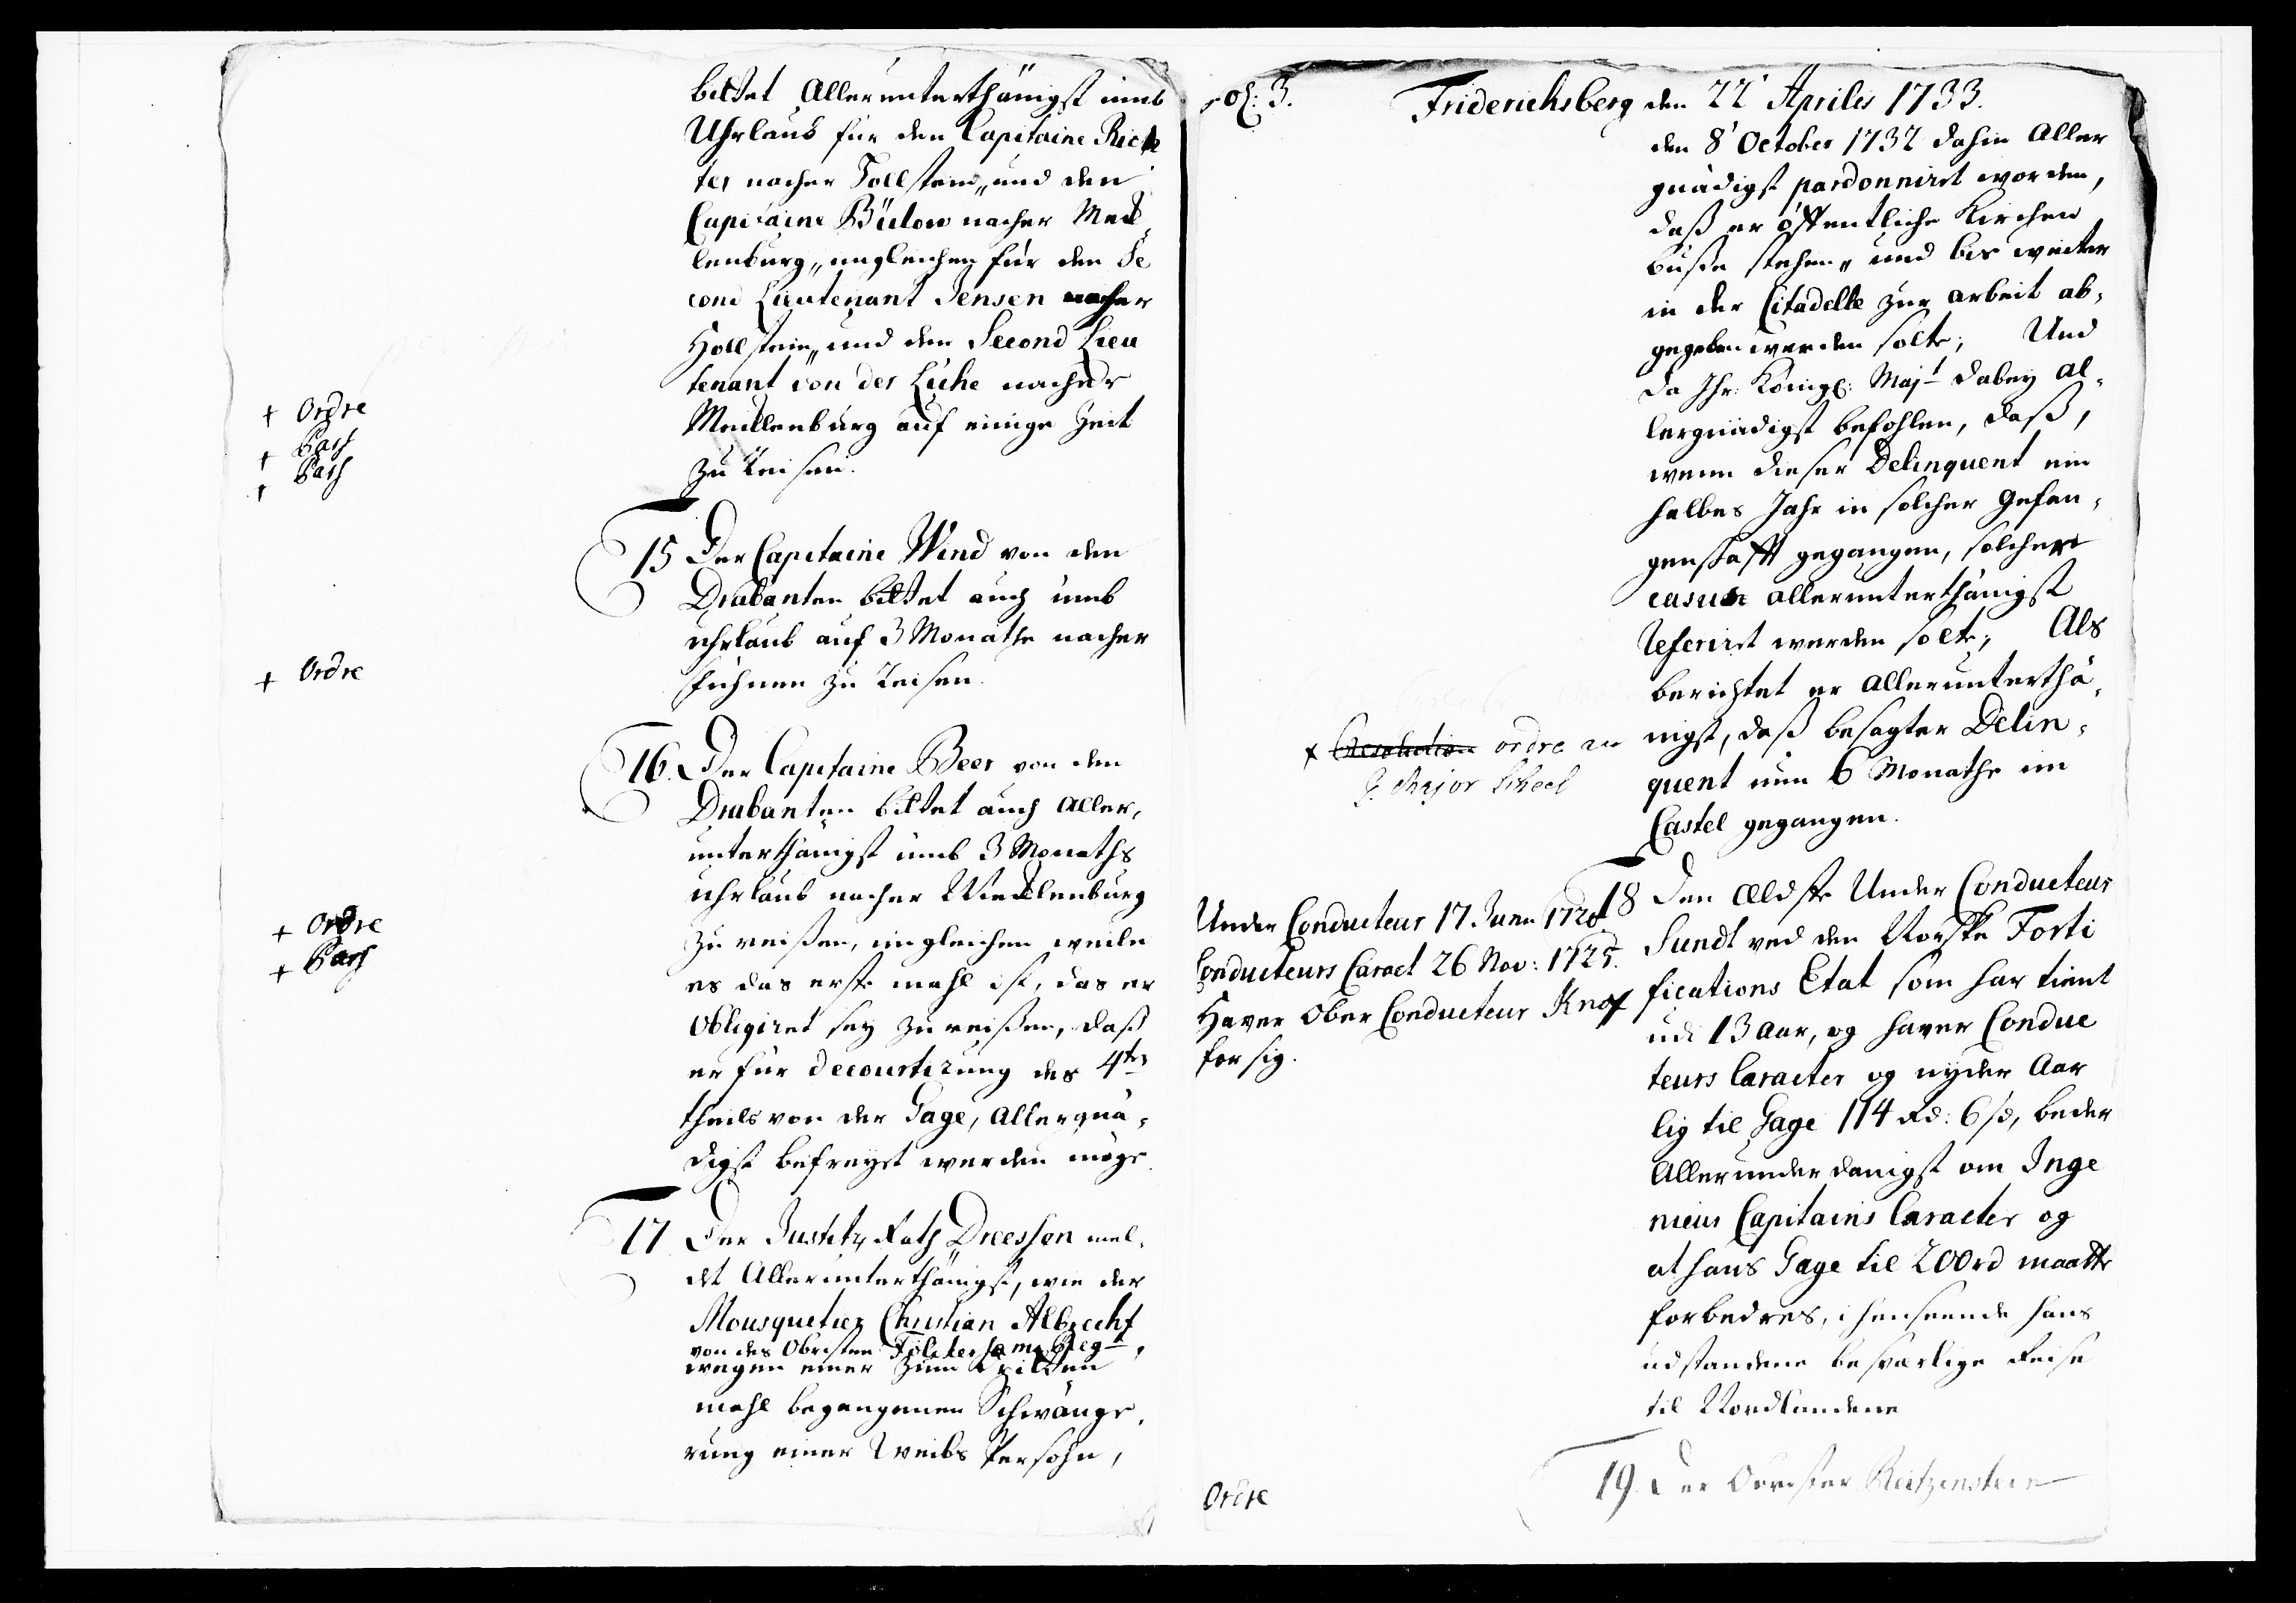 bittet Allerunterthänigst umb
Uhrlaub für den Capitaine Rich
ter nacher Hollstein, und den
Capitaine Bülow nacher Meck¸
lenburg, ungleichen für den Se
cond Lieutenant Jensen nacher
Hollstein, und den Second Lieu
tenant von der Lühe nacher
Mecklenburg auf einige Zeit
zu Reisen.
+ Ordre
+ Pass
+ Pass
15 Der Capitaine Wind von den
Drabanten bittet auch umb
uhrlaub auf 3 Monathe nacher
Fühnen zu Reisen.
+ Ordre
16. Der Capitaine Beer von den
Drabanten bittet auch aller¸
unterthänigst umb 3 Monaths
uhrlaub nacher Mecklenburg
zu reißen, imgleichen weile
es das erste mahl ist, das er
obligiret sey zu reißen, daß
er für decourtirung des 4ten
theils von der Gage, Allergnä¸
digst befreyet werden möge.
+ Ordre
+ Pass
17 Der Justitz Rath Dreessen mel¸
det Allerunterthänigst, wie der
Mousquetier Christian Albrecht
von des Obristen Regt.
wegen einer zum dritten
mahl begangenen Schwänge¸
rung einer Weibs Persohn,
fol: 3.
Friderichsberg den 22 Aprilis 1733.
den 8 October 1732 dahin Aller
gnädigst pardonniret worden,
daß er öffentliche Kirchen
buße stehen, und bis weiter
in der Citadelle zur arbeit ab¸
gegeben werden solte; Und
da Ihr: Königl: Majt dabey al¸
lergnädigst befohlen, daß,
wenn dieser Delinquent ein
halbes Jahr in solcher gefan¸
genschafft gegangen, solcher
casus allerunterthänigst
Referiret werden solte; Als
berichtet er allerunterthä¸
nigst, daß besagter Delin¸
quent nun 6 Monathe im
Castel gegangen.
+ Resolution ordre an
G. Major Scheel
18 Den ældste Under Conducteur
Sundt ved den Norske Forti
fications Etat som har tient
udi 13 aar, og haver Conduc
teurs Caracter og nyder Aar
lig til Gage 114 Rd: 6 ß, beder
Allerunderdanigst om Inge
nieur Capitains Caracter og
at hans Gage til 200 rd maatte
forbedres, i henseende hans
udstandene besværlige Reise
til Nordlandene
Under Conducteur 17. Junii 1720.
Conducteurs Caract 26 Nov: 1725.
Haver Ober Conducteur Knoff
for sig.
19. Der Obrister Reitzenstein
Ordre